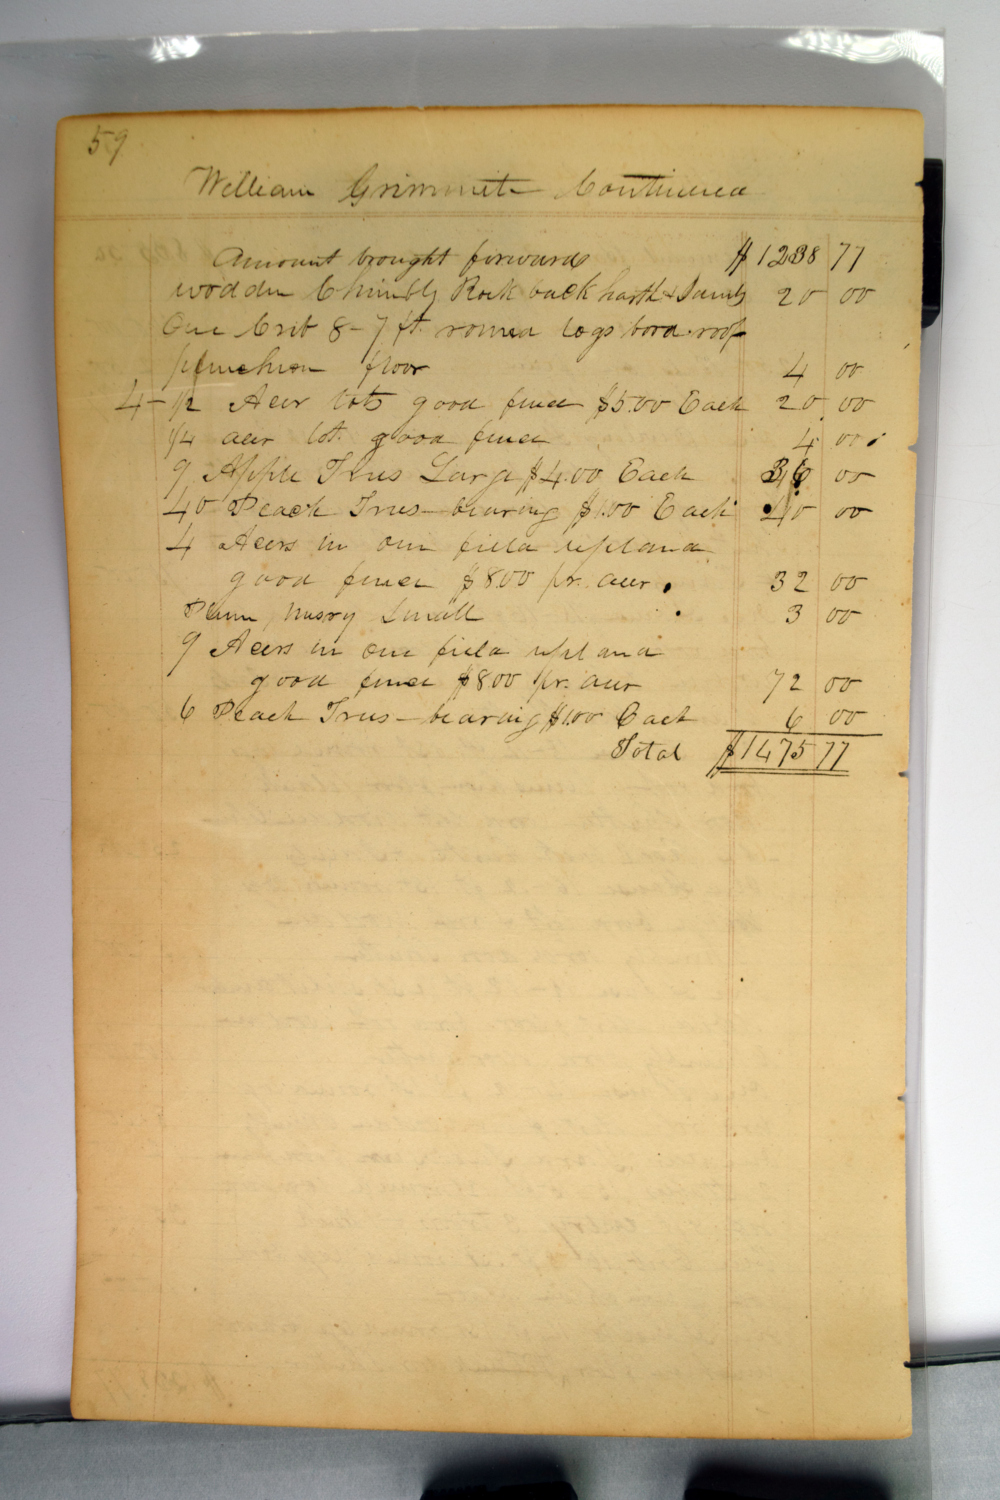 59
William Grimmite Continued
Amount brought forward $1238 77
wodden Chimbly Rock back harth & Jambs 20 00
One Crib 8-7 ft. round logs bord roof
puncheon floor 4 00
4- 1/2 Acer lots good fence $5.00 Each 20 00
1/4 acer lot good fence 4 00
9 Apple Trees Large $4.00 Each 36 00
40 Peach Trees bearing $1.00 Each 40 00
4 Acers in one field upland
good fence $8.00 pr. acer 32 00
Plum Small 3 00
9 Acers in one field upland
good fence $8.00 pr. acer 72 00
6 Peach Trees - bearing $1.00 Each 6 00
Total $1475 77